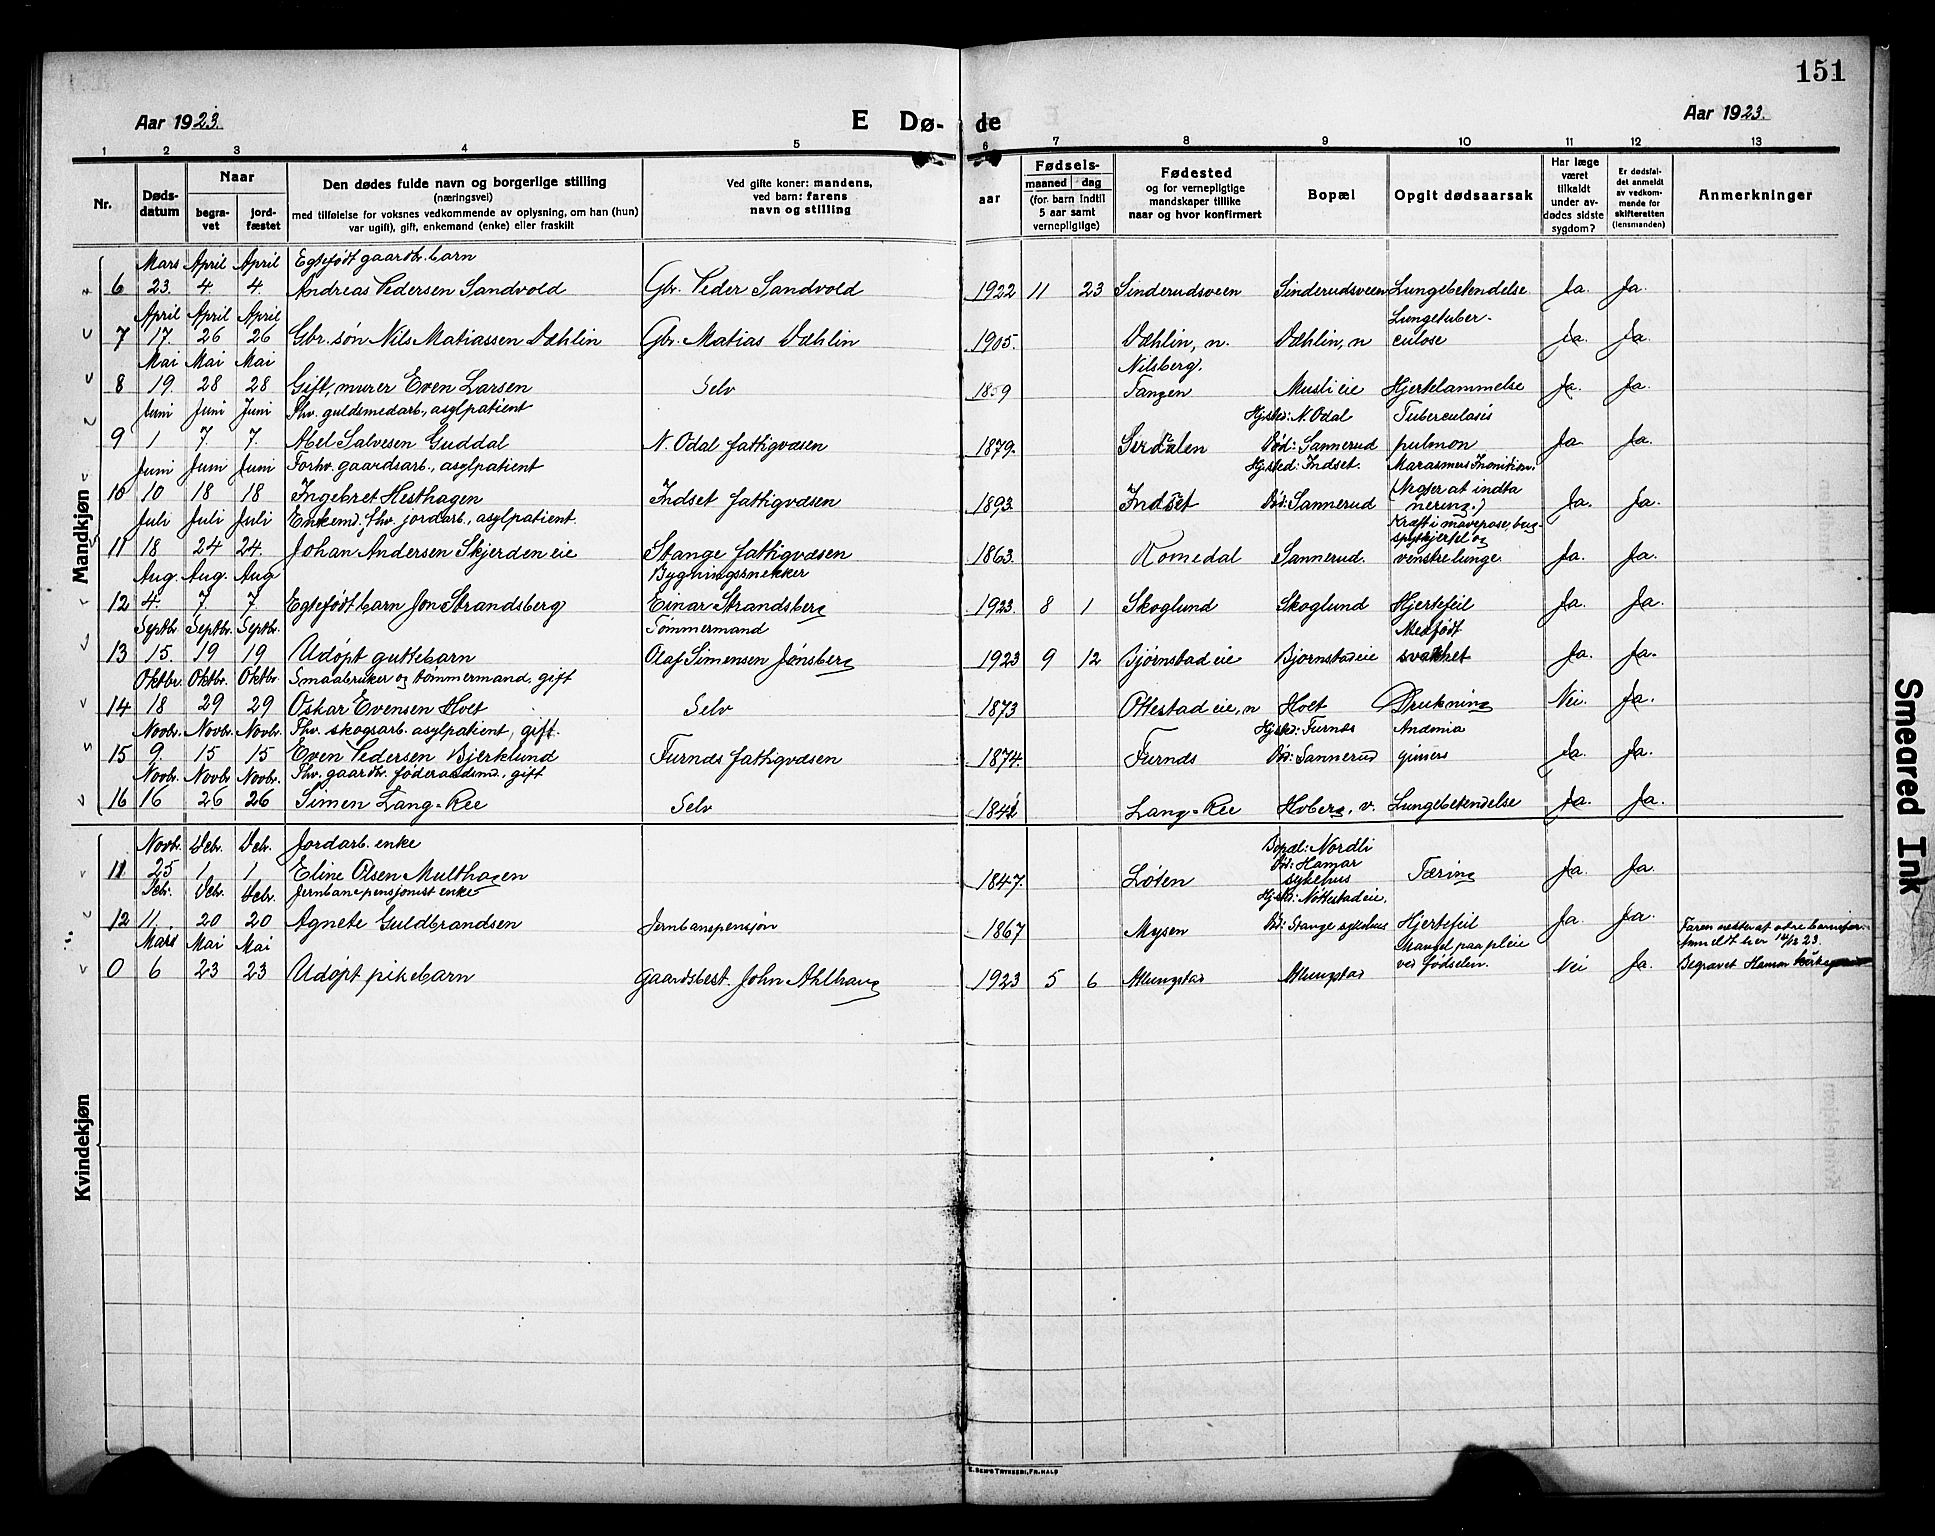 151
Aar 1923.
E Dø-
de
Aar 1923.
1 2 3 4 5 6 7 8 9 10 11 12 13
Nr.
Døds-
datum
Naar
begra-
vet
jord-
fæstet
Den dødes fulde navn og borgerlige stilling
(næringsvei)
med tilføielse for voksnes vedkommende av oplysning, om han (hun)
var ugift), gift, enkemand (enke) eller fraskilt
Ved gifte koner: mandens,
ved barn: farens
navn og stilling
aar
Fødsels-
maaned dag
(for barn indtil
5 aar samt
vernepligtige)
Fødested
og for vernepligtige
mandskaper tillike
naar og hvor konfirmert
Bopæl
Opgit dødsaarsak
Har læge
været
tilkaldt
under av-
dødes sidste
sygdom?
Er dødsfal-
det anmeldt
av vedkom-
mende for
skifteretten
(lensmanden)
Anmerkninger
Mandkjøn
Mars April April Egtefødt gaardbr. barn
6 23. 4. 4. Andreas Pedersen Sandvold Gbr. Peder Sandvold 1922 11 23 Sinderudsveen Sinderudsveen Lungebetendelse Ja. Ja.
April April April Lungetuber-
7 17. 26 26 Gbr. søn Nils Matiassen Dæhlin Gbr. Matias Dæhlin 1905. Dæhlin, n. Dæhlin, n culose Ja. Ja.
Mai Mai Mai Nilsberg,
8 19. 28 28 Gift, murer Even Larsen Selv 1859 Tangen Musli eie Hjertelammelse Ja. Ja.
Juni Juni Juni Fhv. guldsmedarb., asylpatient Hjsted: N. Odal Tuberculosis
9 1 7. 7. Abel Salvesen Guddal N. Odal fattigvæsen 1879. Serdalen Død: Sannerud pulmon Ja Ja.
Juni Juni Juni Forhv. gaardsarb., asylpatient Hjsted: Indset. Marasmers
10 10 18 18 Ingebret Hesthagen Indset fattigvæsen 1893. Indset Død: Sannerud (Negter at indta Ja. Ja.
nering.)
Juli Juli Juli Enkemd. fhv. jordarb., asylpatient. Kræft i mavepose, bug-
spytkjertel og
11 18 24 24. Johan Andersen Skjerden eie Stange fattigvæsen 1863. Romedal Sannerud. venstre lunge Ja. Ja.
Aug. Aug. Aug Bygningssnekker
12 4. 7. 7. Egtefødt barn Jon Strandsberg Einar Strandsberg 1923. 8 1 Skoglund Skoglund Hjertefeil Ja. Ja.
Septbr. Septbr. Septbr. Tømmermand Medfødt
13 15. 19 19 Udøpt guttebarn Olaf Simensen Jønsberg 1923 9 12 Bjørnstad eie Bjørnstad eie svakhet Ja. Ja.
Oktbr. Oktbr. Oktbr. Smaabruker og tømmermand, gift
14 18 29 29 Oskar Evensen Hoet Selv 1873 Ottestad eie, n Hoet Drukning Nei. Ja.
Novbr. Novbr. Novbr. Fhv. skogsarb. asylpatient, gift. Hjsted: Furnes Anæmia
15 9. 15 15 Even Pedersen Bjerklund Furnes fattigvæsen 1874. Furnes Død: Sannerud Ja. Ja.
Novbr. Novbr. Novbr. Fhv. gaardbr. føderaadsmd., gift
16 16 26 26 Simen Lang-Ree Selv Lang-Ree Hoberg, v. Lungebetendelse Ja. Ja.
Kvindekjøn
Novbr. Debr. Debr. Jordarb. enke Bopæl: Nordli
Død: Hamar
11 25 1 1 Eline Olsen Multhagen 1847. Løten sykehus Tæring Ja. Ja.
Debr. Debr. Debr. Jernbanepensjonist enke Hjsted: Nøttestad eie,
12 11. 20 20 Agnete Guldbrandsen Jernbanepensjon 1867 Mysen Død: Stange sykehus Hjertefeil Ja. Ja.
Mars Mai Mai Mangel paa pleie
0 6 23 23 Udøpt pikebarn Gaardsbest. John Ahlhaug 1923 5 6 Atlungstad Atlungstad ved fødselen. Nei Ja.
Begravet Hamar
E. SEM'S TRYKKERI, FR.HALD
Smeared Ink